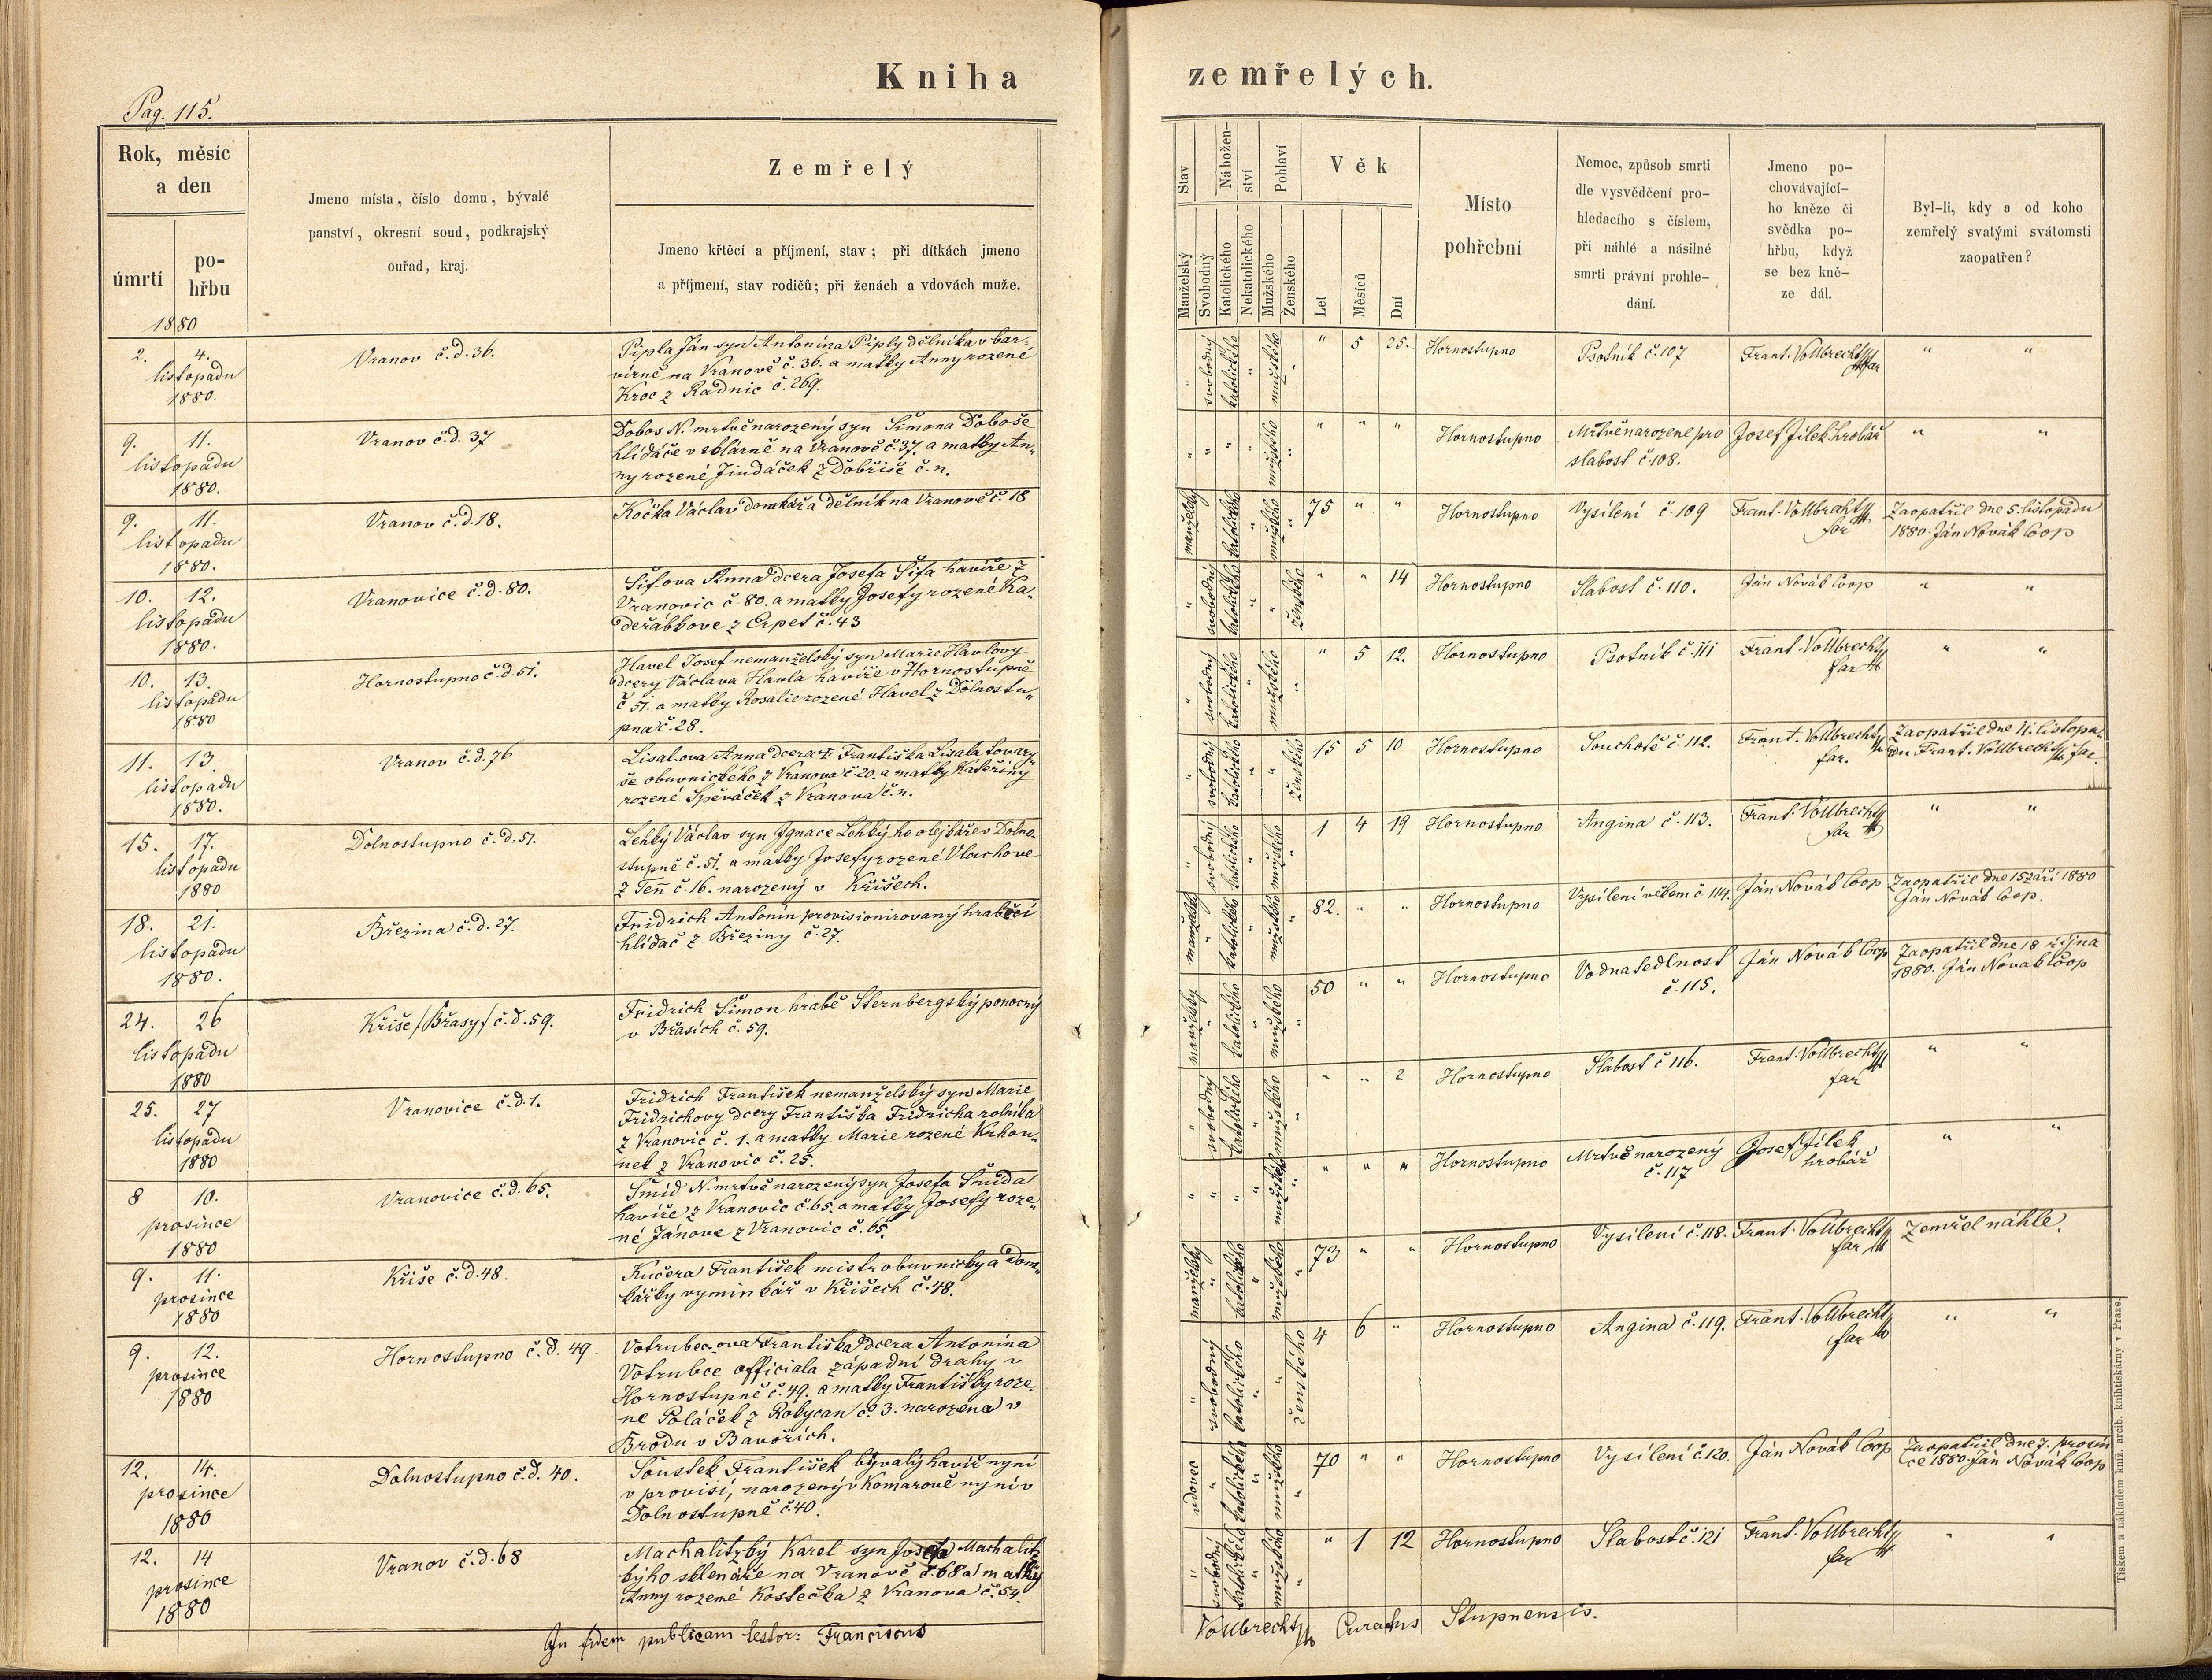 Kniha zemřelých.
Pag. 115.
Rok, měsíc
a den
úmrtí
po-
hřbu
Jmeno místa, číslo domu, bývalé
panství, okresní soud, podkrajský
ouřad, kraj.
Zemřelý
Jmeno křtěcí a příjmení, stav; při dítkách jmeno
a příjmení, stav rodičů; při ženách a vdovách muže.
Stav
Manželský
Svobodný
Nábožen-
ství
Katolického
Nekatolického
Pohlaví
Mužského
Ženského
Věk
Let
Měsíců
Dní
Místo
pohřební
Nemoc, způsob smrti
dle vysvědčení pro-
hledacího s číslem,
při náhlé a násilné
smrti právní prohle-
dání.
Jmeno po-
chovávající-
ho kněze či
svědka po-
hřbu, když
se bez kně-
ze dál.
Byl-li, kdy a od koho
zemřelý svatými svátomsti
zaopatřen?
1880
2. 4.
listopadu
1880.
Vranov č.d. 36.
Pipla Ján syn Antonína Piply dělníka v bar-
vírně na Vranově č. 36. a matky Anny rozené
Kroc z Radnic č. 269.
" svobodný katolického " mužského " " 5 25. Hornostupno Psotník č. 107 Frant. Vollbrecht far " "
9. 11.
listopadu
1880.
Vranov č.d. 37
Dobos N. mrtvě narozený syn Šimona Doboše
hlídače v sklárně na Vranově č. 37. a matky An-
ny rozené Jindáček z Dobříše č. n.
" " " " mužského " " " " Hornostupno Mrtvě narozené pro
slabost č. 108.
Josef Jílek hrobař " "
9. 11.
listopadu
1880.
Vranov č.d. 18.
Kočka Václav domkář a dělník na Vranově č. 18
manželský " katolického " mužského " 75 " " Hornostupno Vysílení č. 109 Frant. Vollbrecht
far
Zaopatřil dne 5. listopadu
1880. Ján Novák Coop
10. 12.
listopadu
1880.
Vranovice č.d. 80.
Šifova Anna dcera Josefa Šifa havíře z
Vranovic č. 80. a matky Josefy rozené Ka-
deřábkove z Erpet č. 43
" svobodný katolického " " ženského " " 14 Hornostupno Slabost č. 110. Ján Novák Coop " "
10. 13.
listopadu
1880
Hornostupno č.d. 51.
Havel Josef nemanželský syn Marie Havlovy
dcery Václava Havla havíře v Hornostupně
č. 51. a matky Rosalie rozené Havel z Dolnostu-
pna č. 28.
" svobodný katolického " mužského " " 5 12. Hornostupno Psotník č. 111 Frant. Vollbrecht
far
" "
11. 13.
listopadu
1880.
Vranov č.d. 76
Lisalova Anna dcera Františka Lisala tovary-
še obuvnického z Vranova č. 20. a matky Kateřiny
rozené Spěváček z Vranova č. n.
" svobodný katolického " " ženského 15 5 10 Hornostupno Souchotě č. 112. Frant. Vollbrecht
far.
Zaopatřil dne 11. listopa-
du Frant. Vollbrecht far.
15. 17.
listopadu
1880
Dolnostupno č.d. 51.
Lehký Václav syn Ignace Lehký-ho olejkáře v Dolno-
stupně č. 51. a matky Josefy rozené Vlachove
z Teň č. 16. narozený v Kříšech.
" svobodný katolického " mužského " 1 4 19 Hornostupno Angina č. 113. Frant. Vollbrecht
far
" "
18. 21.
listopadu
1880.
Březina č.d. 27.
Fridrich Antonín provisionirovaný hraběcí
hlídač z Březiny č. 27.
manželský " katolického " mužského " 82. " " Hornostupno Vysílení věkem č. 114. Ján Novák Coop Zaopatřil dne 15 září 1880
Ján Novák Coop.
24. 26
listopadu
1880
Kříše /Břasy/ č.d. 59.
Fridrich Šimon hrabě Sternbergský ponocný
v Břasích č. 59.
manželský " katolického " mužského " 50 " " Hornostupno Vodnatedlnost
č. 115.
Ján Novák Coop Zaopatřil dne 18 října
1880. Ján Novák Coop
25. 27
listopadu
1880
Vranovice č.d. 1.
Fridrich František nemanželský syn Marie
Fridrichovy dcery Františka Fridricha rolníka
z Vranovic č. 1. a matky Marie rozené Krhou-
nek z Vranovic č. 25.
" svobodný katolického " mužského " " " 2 Hornostupno Slabost č. 116. Frant. Vollbrecht
far
" "
8 10.
prosince
1880
Vranovice č.d. 65.
Šmíd N. mrtvě narozený syn Josefa Šmída
havíře z Vranovic č. 65. a matky Josefy roze-
né Jánove z Vranovic č. 65.
" " " " mužského " " " " Hornostupno Mrtvě narozený
č. 117
Josef Jílek
hrobař
" "
9. 11.
prosince
1880
Kříše č.d. 48.
Kučera František mistr obuvnický a dom-
kářský vyminkář v Kříšech č. 48.
manželský " katolického " mužského " 73 " " Hornostupno Vysílení č. 118. Frant. Vollbrecht
far
Zemřel náhle.
9. 12.
prosince
1880
Hornostupno č.d. 49.
Votrubec-ova Františka dcera Antonína
Votrubce officiala západní drahy v
Hornostupně č. 49. a matky Františky roze-
ne Poláček z Rokycan č. 3. narozena v
Brodu v Bavořích.
" svobodný katolického " " ženského 4 6 " Hornostupno Angina č. 119. Frant. Vollbrecht
far
" "
12. 14.
prosince
1880
Dolnostupno č.d. 40.
Soustek František bývalý havíř nyní
v provisi, narozený v Komarově nyní v
Dolnostupně č. 40.
vdovec " katolického " mužského " 70 " " Hornostupno Vysílení č. 120. Ján Novák Coop Zaopatřil dne 7. prosin
ce 1880. Ján Novák Coop
12. 14
prosince
1880
Vranov č.d. 68
Machalitzký Karel syn Josefa Machalitz
kýho sklenáře na Vranově č. 68 a matky
Anny rozené Kostečka z Vranova č. 54.
" svobodný katolického " mužského " " 1 12 Hornostupno Slabost č. 121 Frant. Vollbrecht
far
" "
In fidem publicam testor: Franciscus Vollbrecht Curatus Stupnensis.
Tiskem a nákladem kníž. arcib. knihtiskárny v Praze.